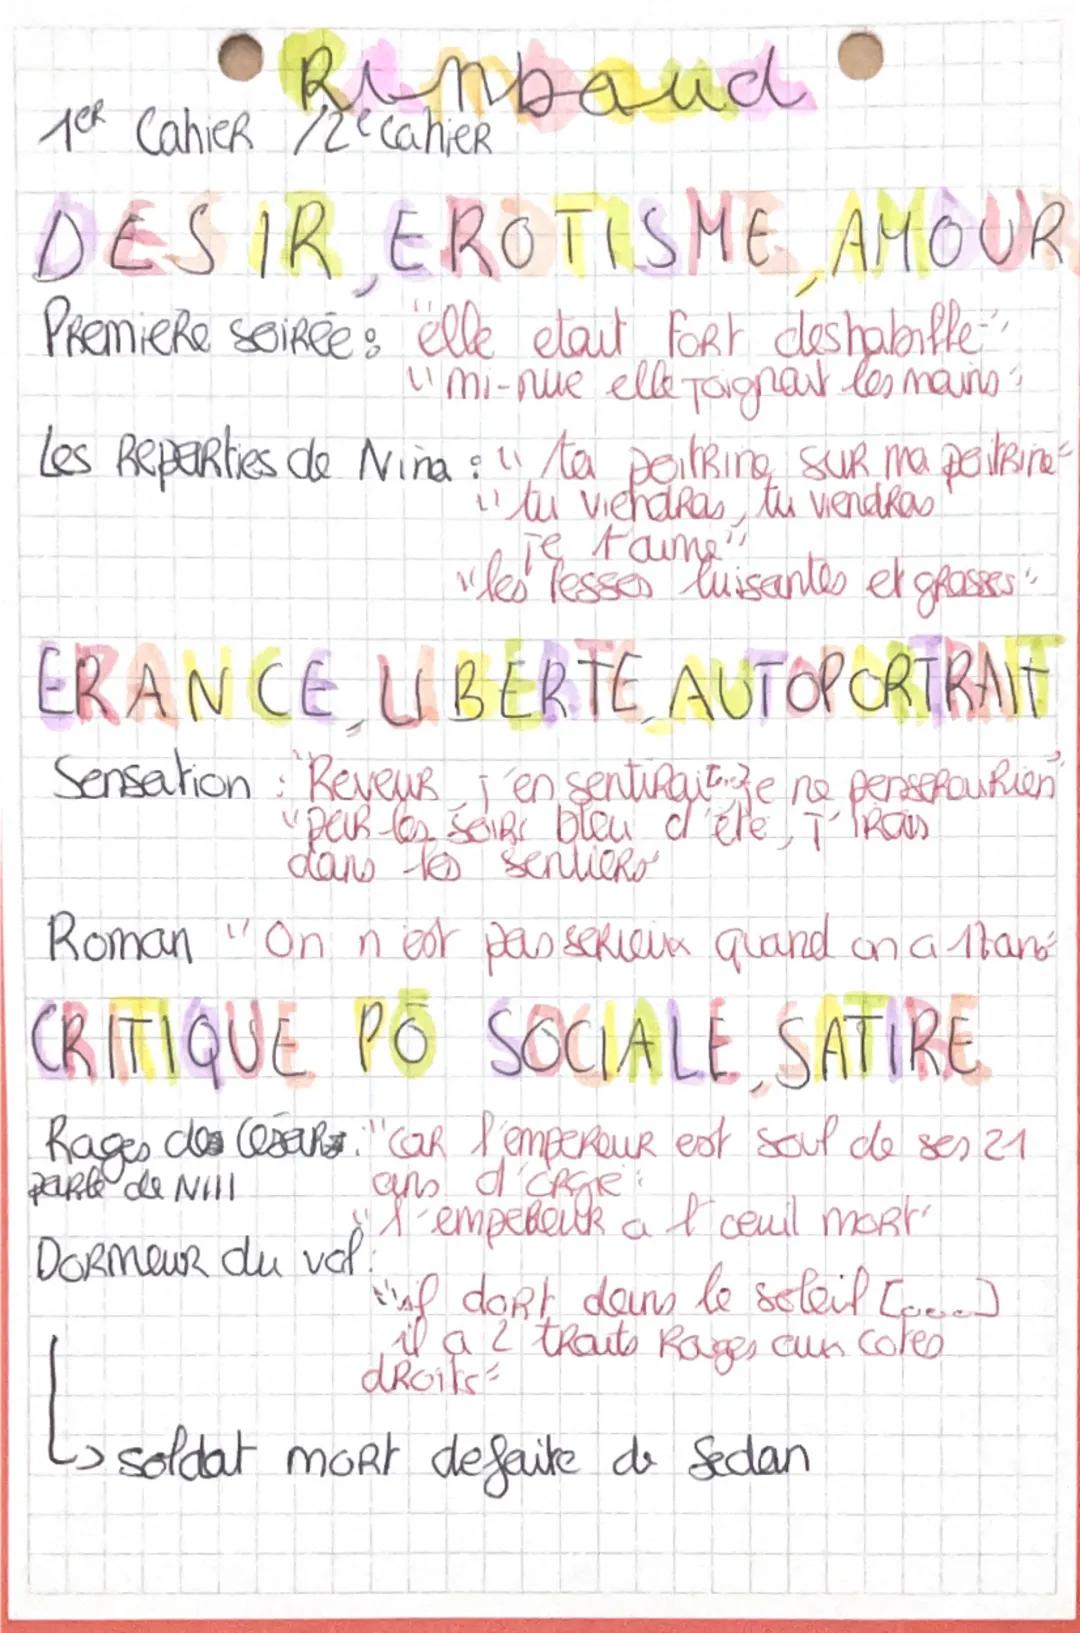 Rimbaud
1ER Cahier / 2e cahier
DESIR, EROTISME, AMOUR
Premiere soirée : "elle etait fort deshabillé"
"mi-nue elle joignait les mains"
Les Reparties de Nina : "ta poitrine sur ma poitrine"
"tu viendras, tu viendras
je t'aime"
"les fesses luisantes et grosses"
ERANCE, LIBERTE, AUTOPORTRAIT
Sensation : "Reveur j'en sentirait [...] je ne penserai Rien"
"par les soirs bleu d'été, j'irais
dans les sentiers"
Roman "On n'est pas serieux quand on a 17 ans"
CRITIQUE PO SOCIALE, SATIRE
Rages des Césars : "car l'empereur est soul de ses 21
parle de NIII
ans d'orgie"
"l'empereur a l'oeuil mort"
Dormeur du val :
"il dort dans le soleil [....]
il a 2 traits Rouges aux cotes
droits"
↳ soldat mort defaite de Sedan